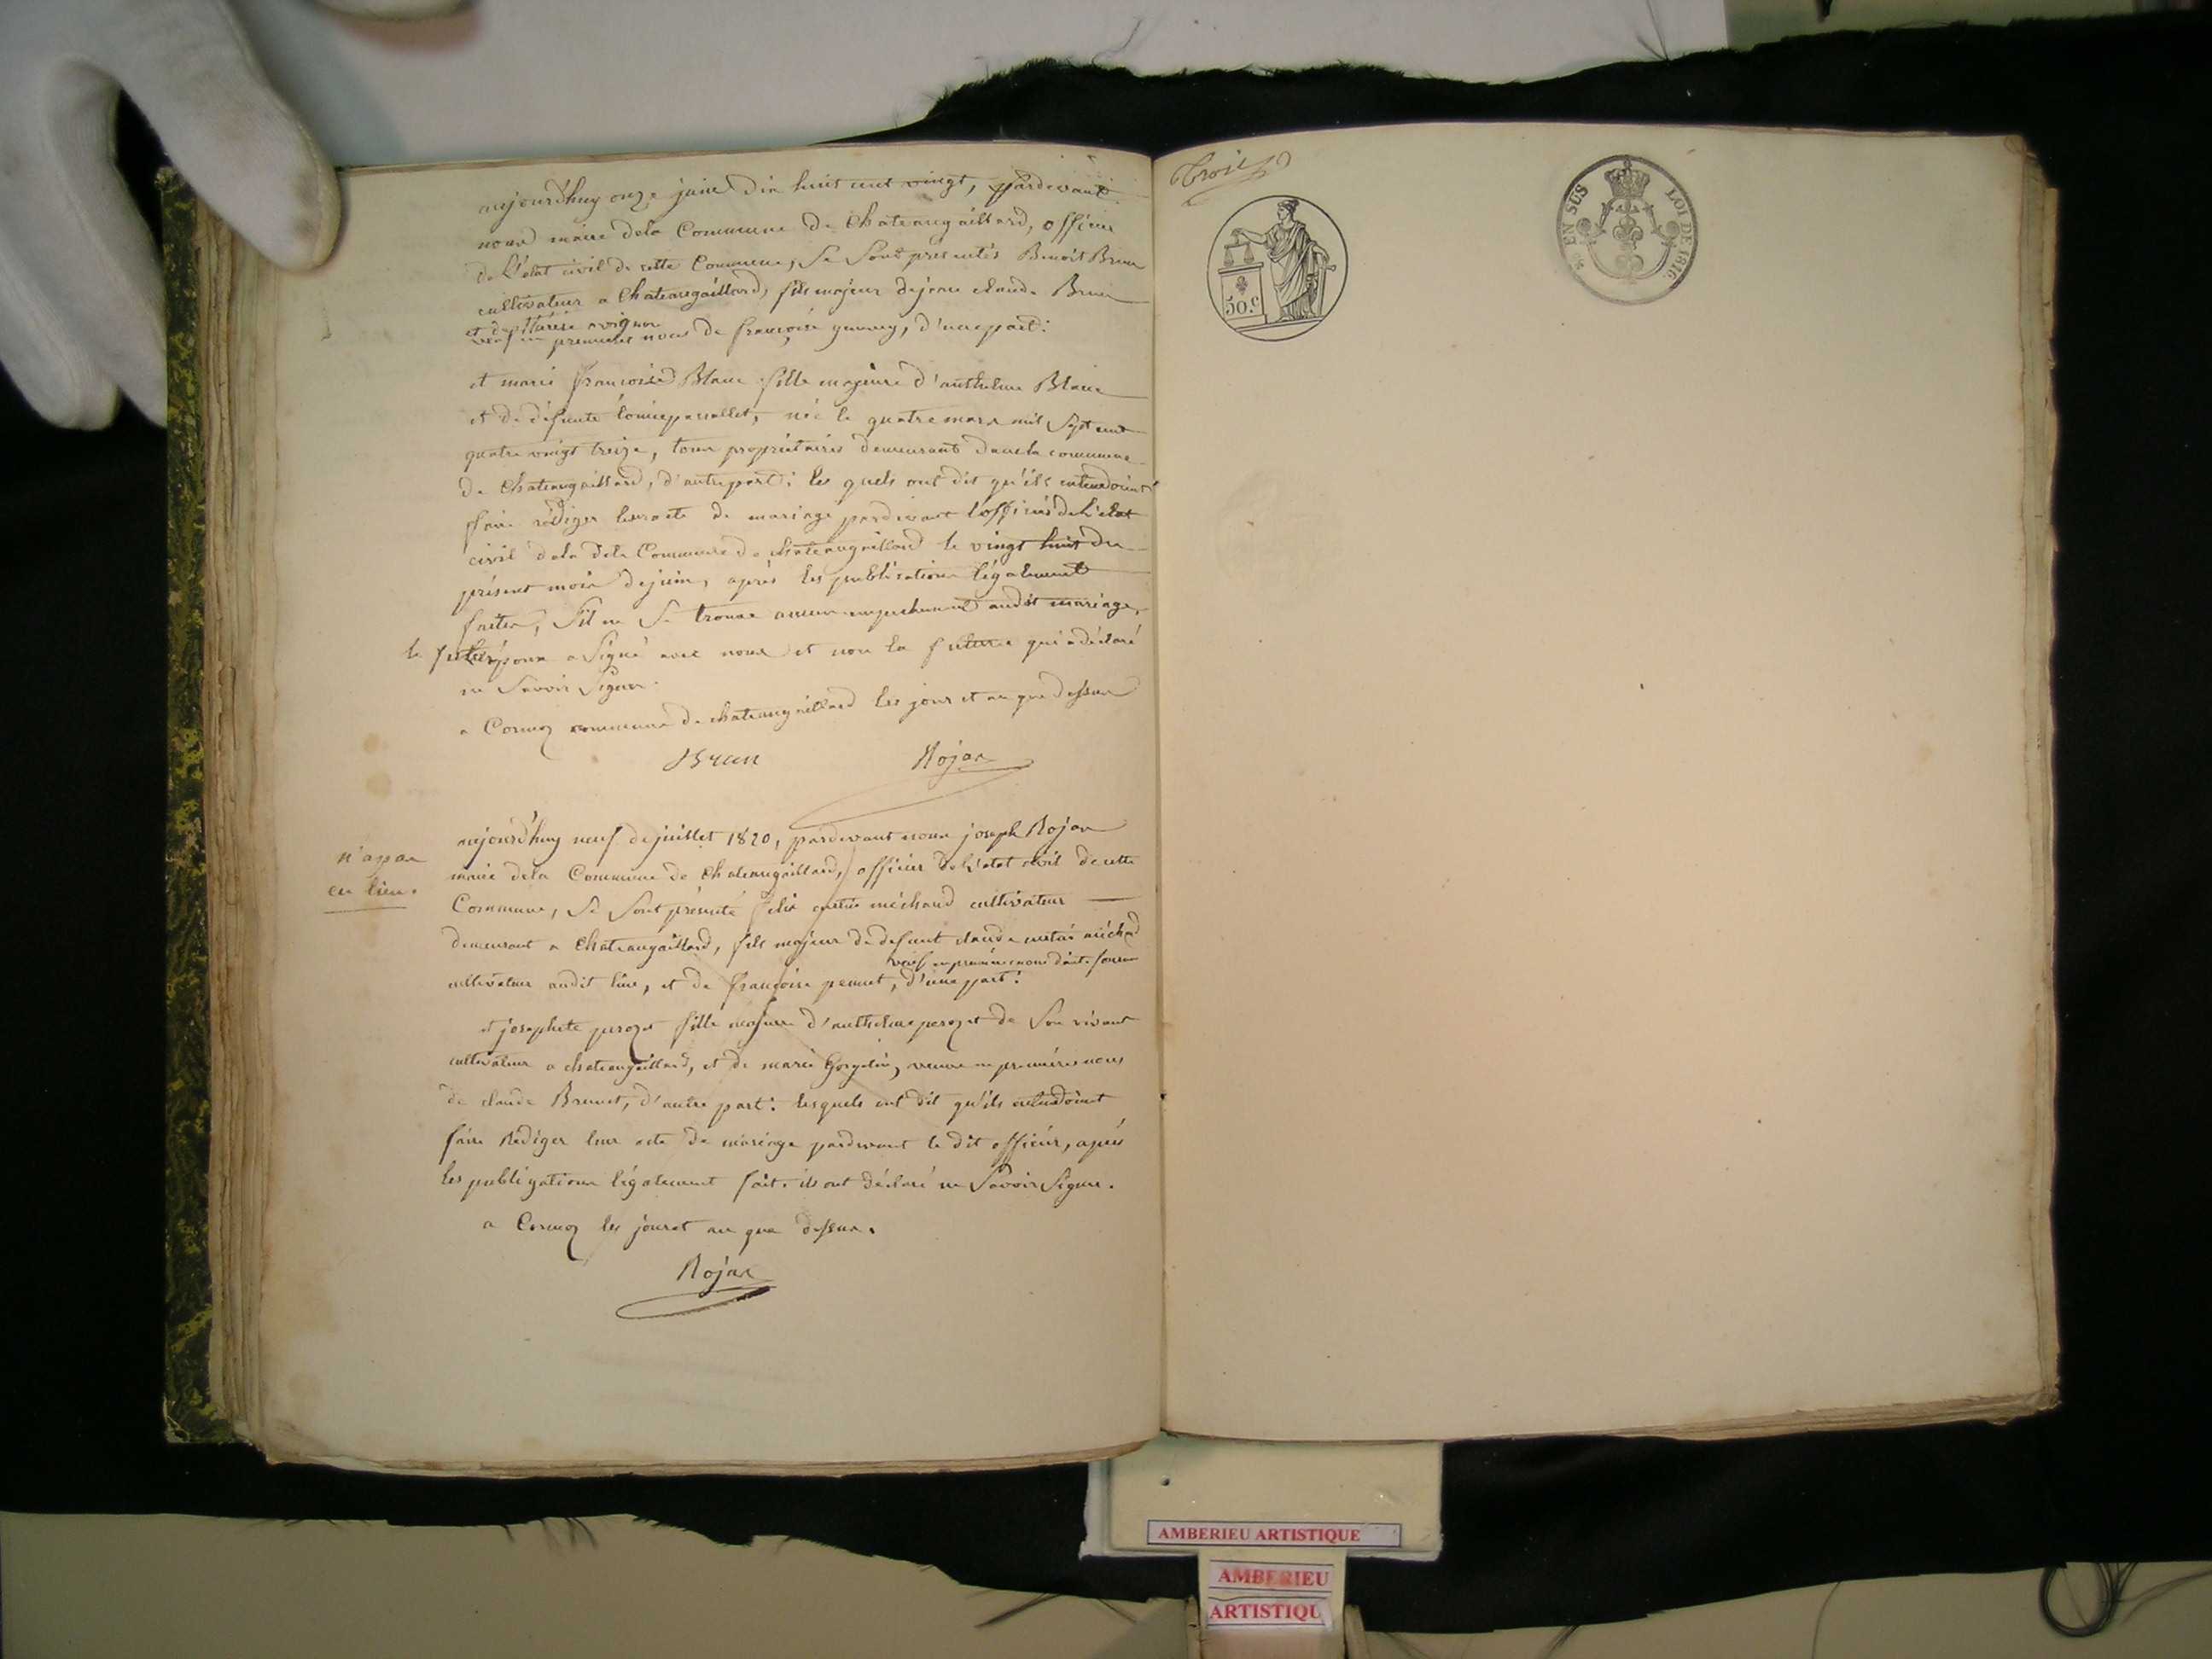 aujourd'huy onze juin dix huit cent vingt, pardevant
nous maire dela Commune de Chateaugaillard, officier
de L'etat civil de cette Commune, Se Sont présentés Benoit Brun
cultivateur a Chateaugaillard, fils majeur de jean claude Brun
et de Marie avignon
veuf en premieres noces de francoise, d'une part:
et marie francoise Blanc fille majeure d'anthelme Blanc
et de défunte, née le quatre mars mil Sept cent
quatre vingt treize, tous propriétaires demeurant dans la commune
de Chateaugaillard, d'autre part: les quels ont dit qu'ils entendoint
faire rédiger leur acte de mariage pardevant l'officier de L'etat
civil dela dite Commune de chateaugaillard le vingt huit du
présent mois de juin, après les publications légalement
faites, S'il ne Se trouve aucun empechement audit mariage,
le futur époux a Signé avec nous et non la future qui a déclaré
ne Savoir Signer.
a Cormoz commune de chateaugaillard les jour et an que dessus
Brun Rojas
n'a pas
eu lieu.
aujourd'huy neuf de juillet 1820, pardevant nous joseph Rojas
maire dela Commune de Chateaugaillard, officier de L'etat civil de cette
Commune, Se Sont présenté felix méchaud cultivateur
demeurant a Chateaugaillard, fils majeur de defunt claude
veuf en premiere noce
cultivateur audit lieu, et de françoise, d'une part:
et josephte perozet fille majeure d'anthelme perozet de Son vivant
cultivateur a chateaugaillard, et de marie, veuve en premieres noces
de claude Brunet, d'autre part: lesquels ont dit qu'ils entendoint
faire Rédiger leur acte de mariage pardevant le dit officier, après
les publigations légalement fait. ils ont déclaré ne Savoir Signer.
a Cormoz les jour et an que dessus.
Rojas
Trois
50.c
EN SUS LOI DE 1816.
AMBERIEU ARTISTIQUE
AMBERIEU
ARTISTIQU